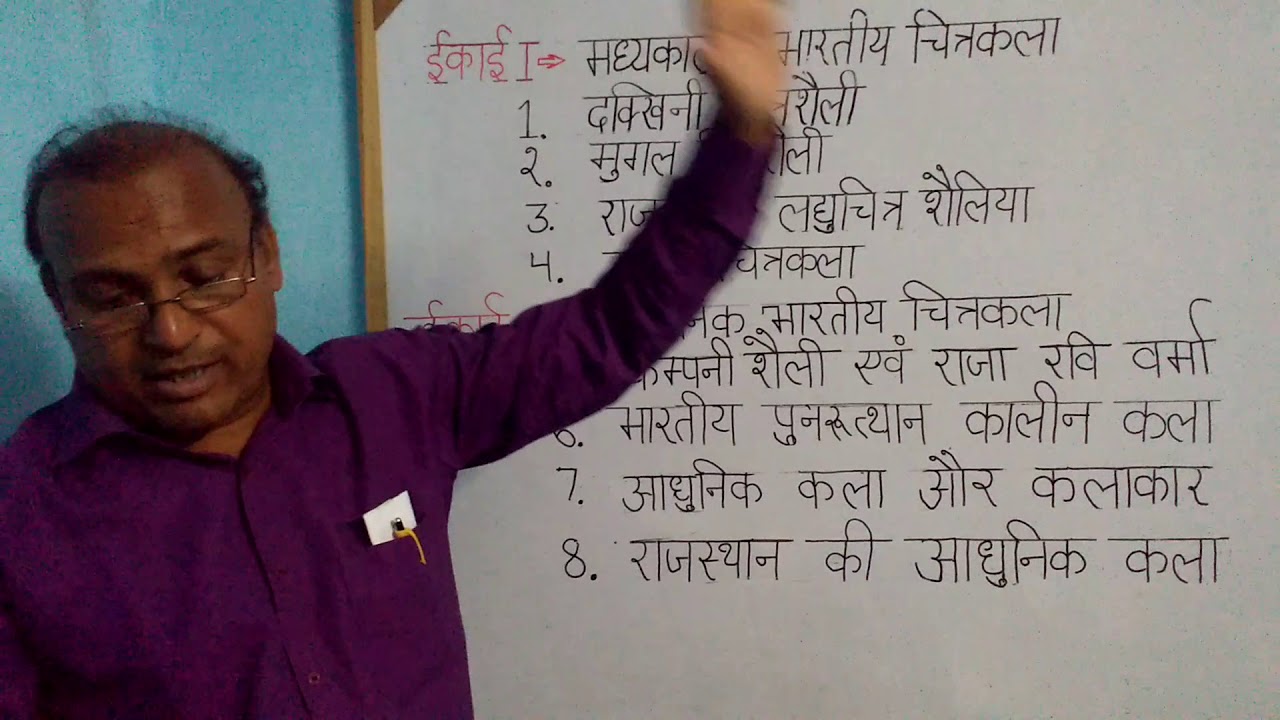 ईकाई I⇒ भारतीय चित्रकला
1. दक्खिनी
२. मुगल
3. लघुचित्र शैलिया
4. चित्रकला
ईकाई भारतीय चित्रकला
कम्पनी शैली एवं राजा रवि वर्मा
6. भारतीय पुनरूत्थान कालीन कला
7. आधुनिक कला और कलाकार
8. राजस्थान की आधुनिक कला